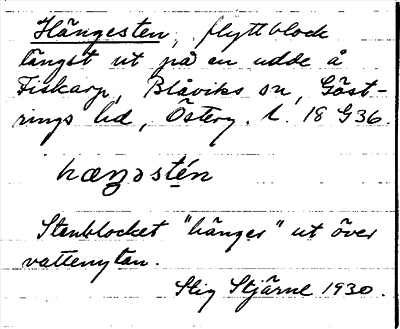 Hängesten, flyttblock
längst ut på en udde å
Fiskarp, Blåviks sn, Göst-
rings hd, Österg. l. 18 G 36.
hæŋəstén
Stenblocket "hänger" ut över
vattenytan.
Stig Stjärne 1930.